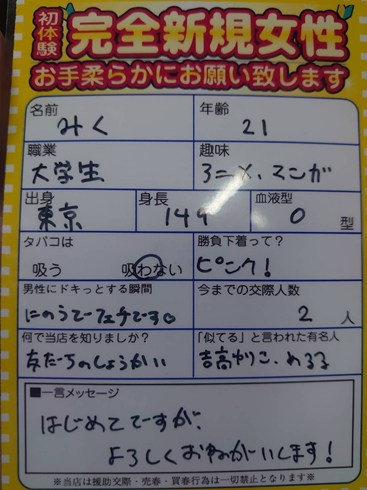 初体験
完全新規女性
お手柔らかにお願い致します
名前 みく
年齢 21
職業 大学生
趣味 アニメ、マンガ
出身 東京
身長 149
血液型 O 型
タバコは 吸う 吸わない
勝負下着って? ピンク!
男性にドキっとする瞬間
にのうでフェチです♡
今までの交際人数 2 人
何で当店を知りましたか?
友だちのしょうかい
「似てる」と言われた有名人
吉高ゆりこ、めるる
■一言メッセージ
はじめてですが、
よろしくおねがいします!
※当店は援助交際・売春・買春行為は一切禁止となります※